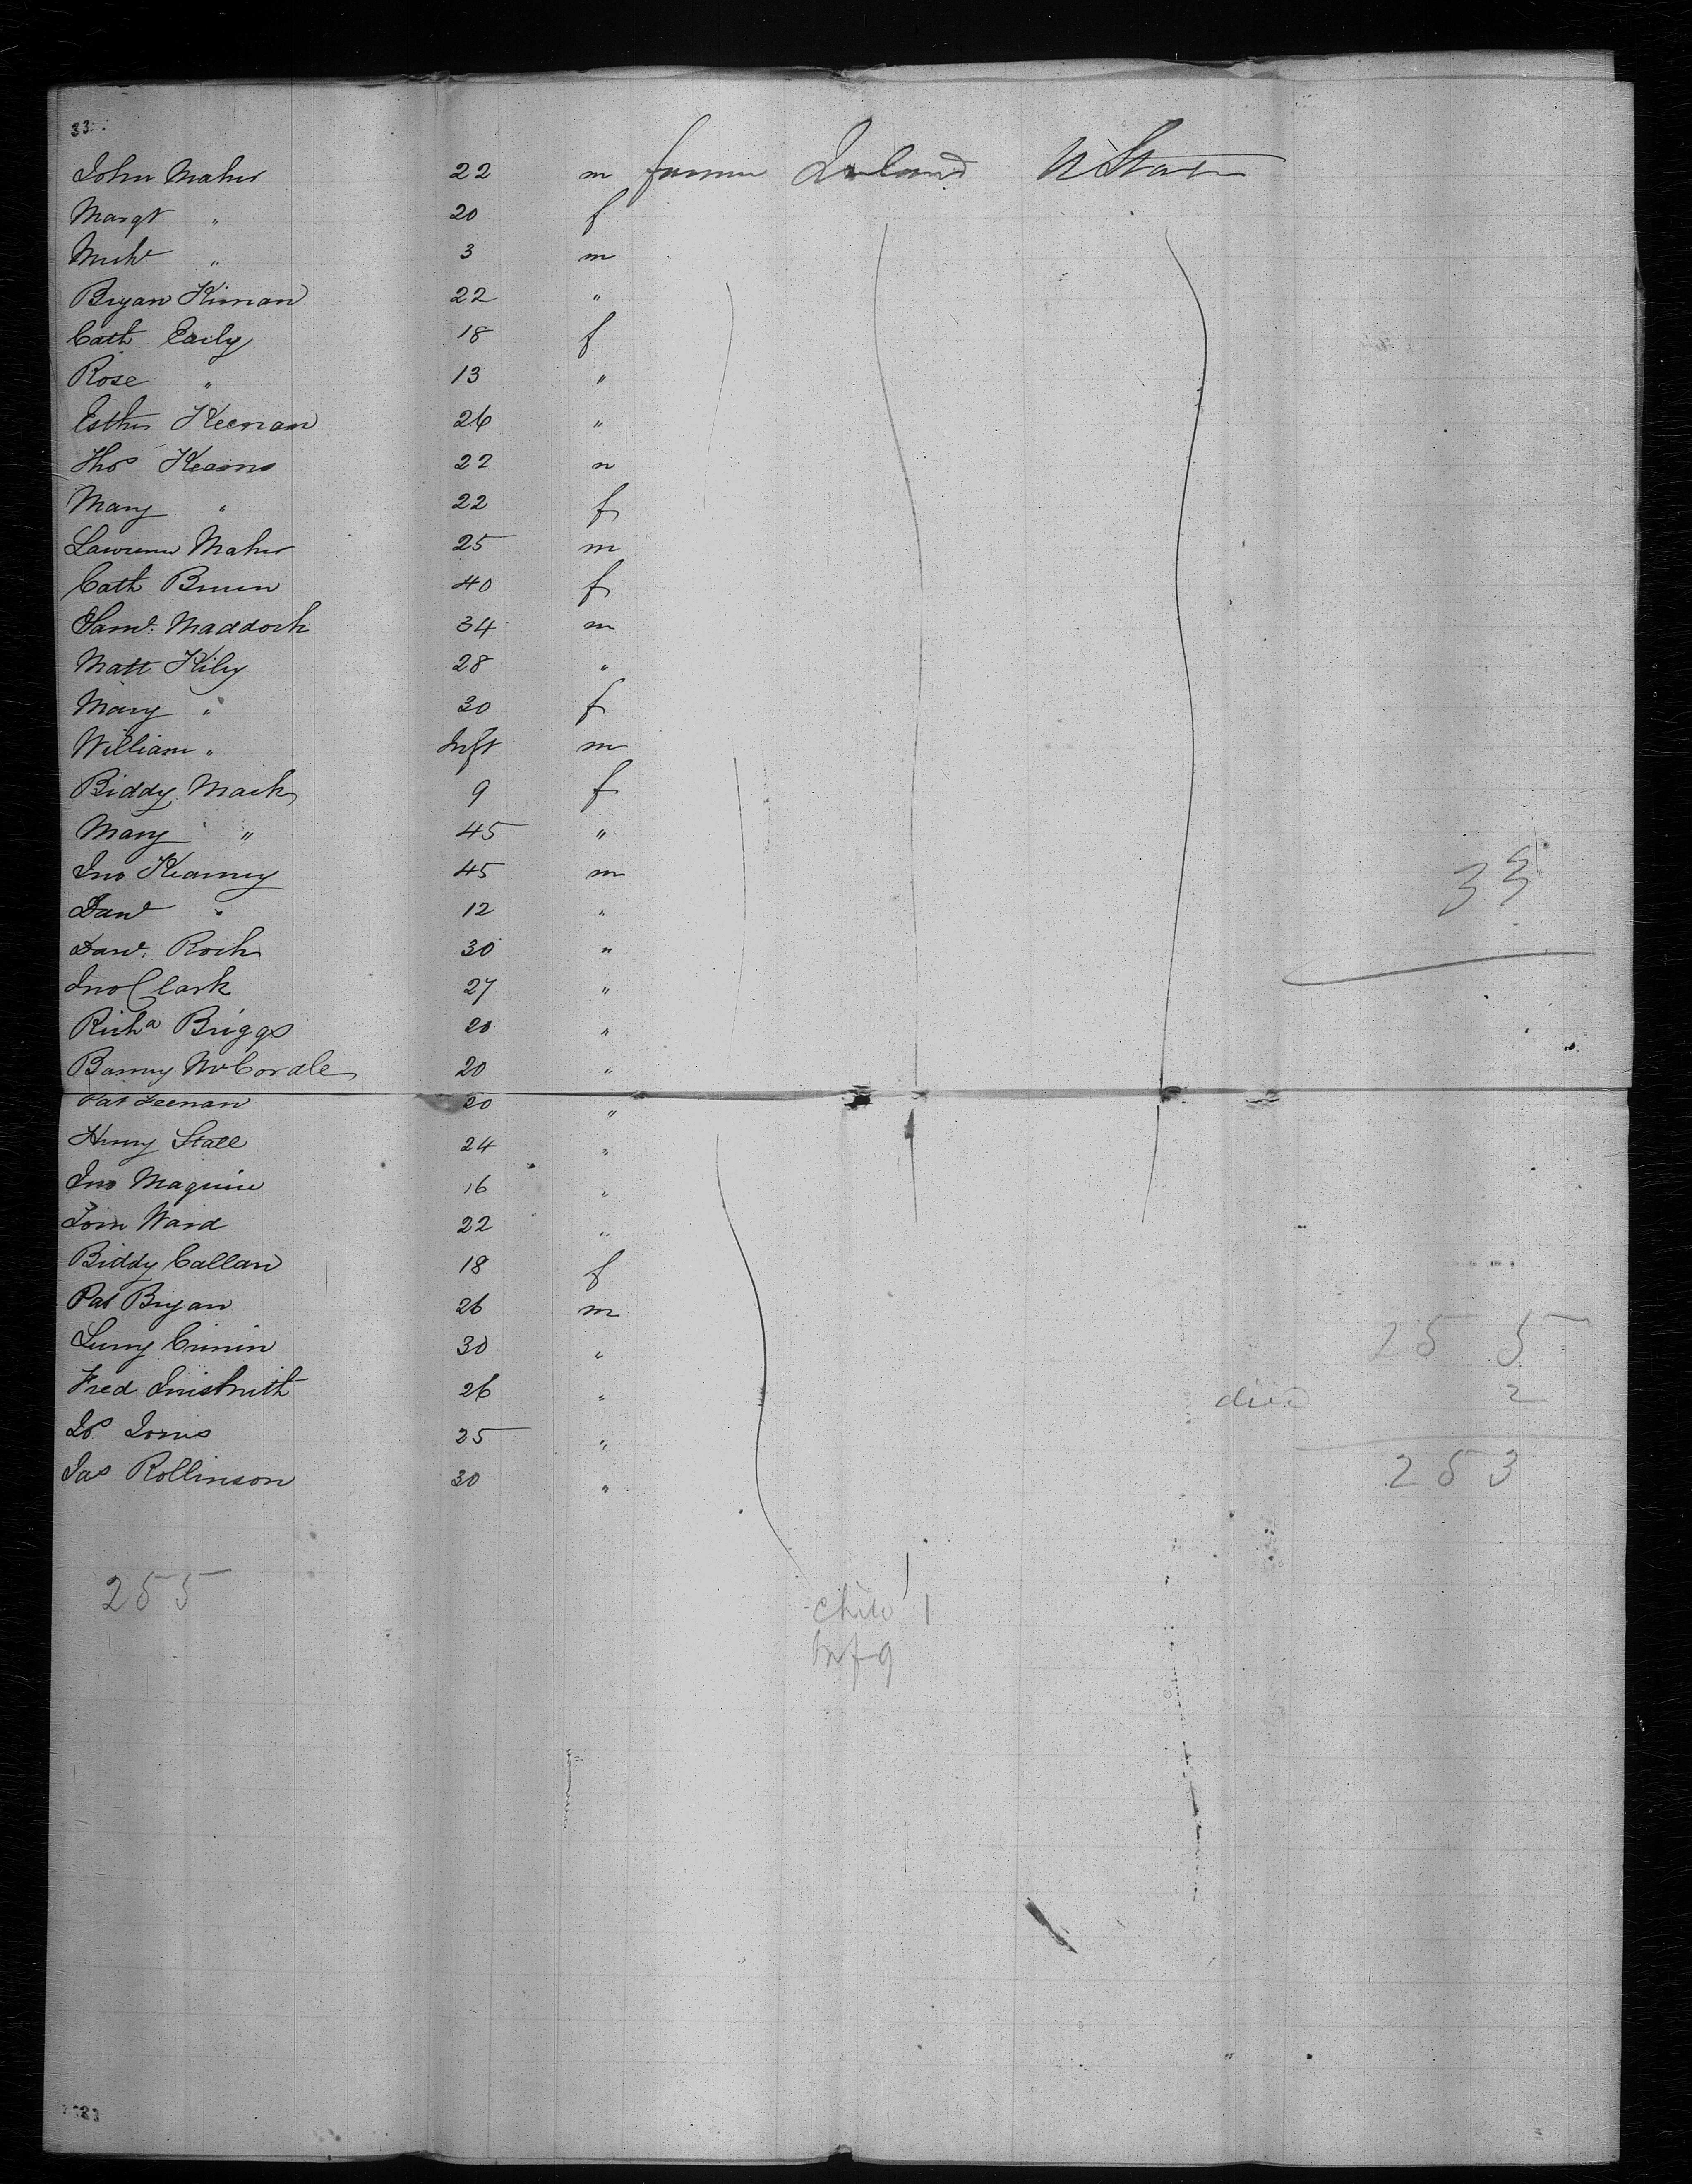 33
John Maher 22 m farmer Ireland U States
Margt " 20 f
Michl " 3 m
Bryan Kiernan 22 "
Cath Early 18 f
Rose " 13 "
Esther Keenan 26 "
Thos Kearns 22 m
Mary " 22 f
Lawrence Maher 25 m
Cath Bruen 40 f
Saml. Maddock 34 m
Matt Kiley 28 "
Mary " 30 f
William " Inft m
Biddy Mack 9 f
Mary " 45 "
Jno Kearney 45 m
Danl " 12 "
Danl. Roch 30 "
Jno Clark 27 "
Richd Briggs 20 "
Barney McCordle 20 "
Pat Feenan 20 "
Henry Stall 24 "
Jno Maguire 16 "
Tom Ward 22 "
Biddy Callan 18 f
Pat Bryan 26 m
30 "
Fred 26 "
25 "
Jas Rollinson 30 "
33
255
died 2
253
255
child 1
Inf 9